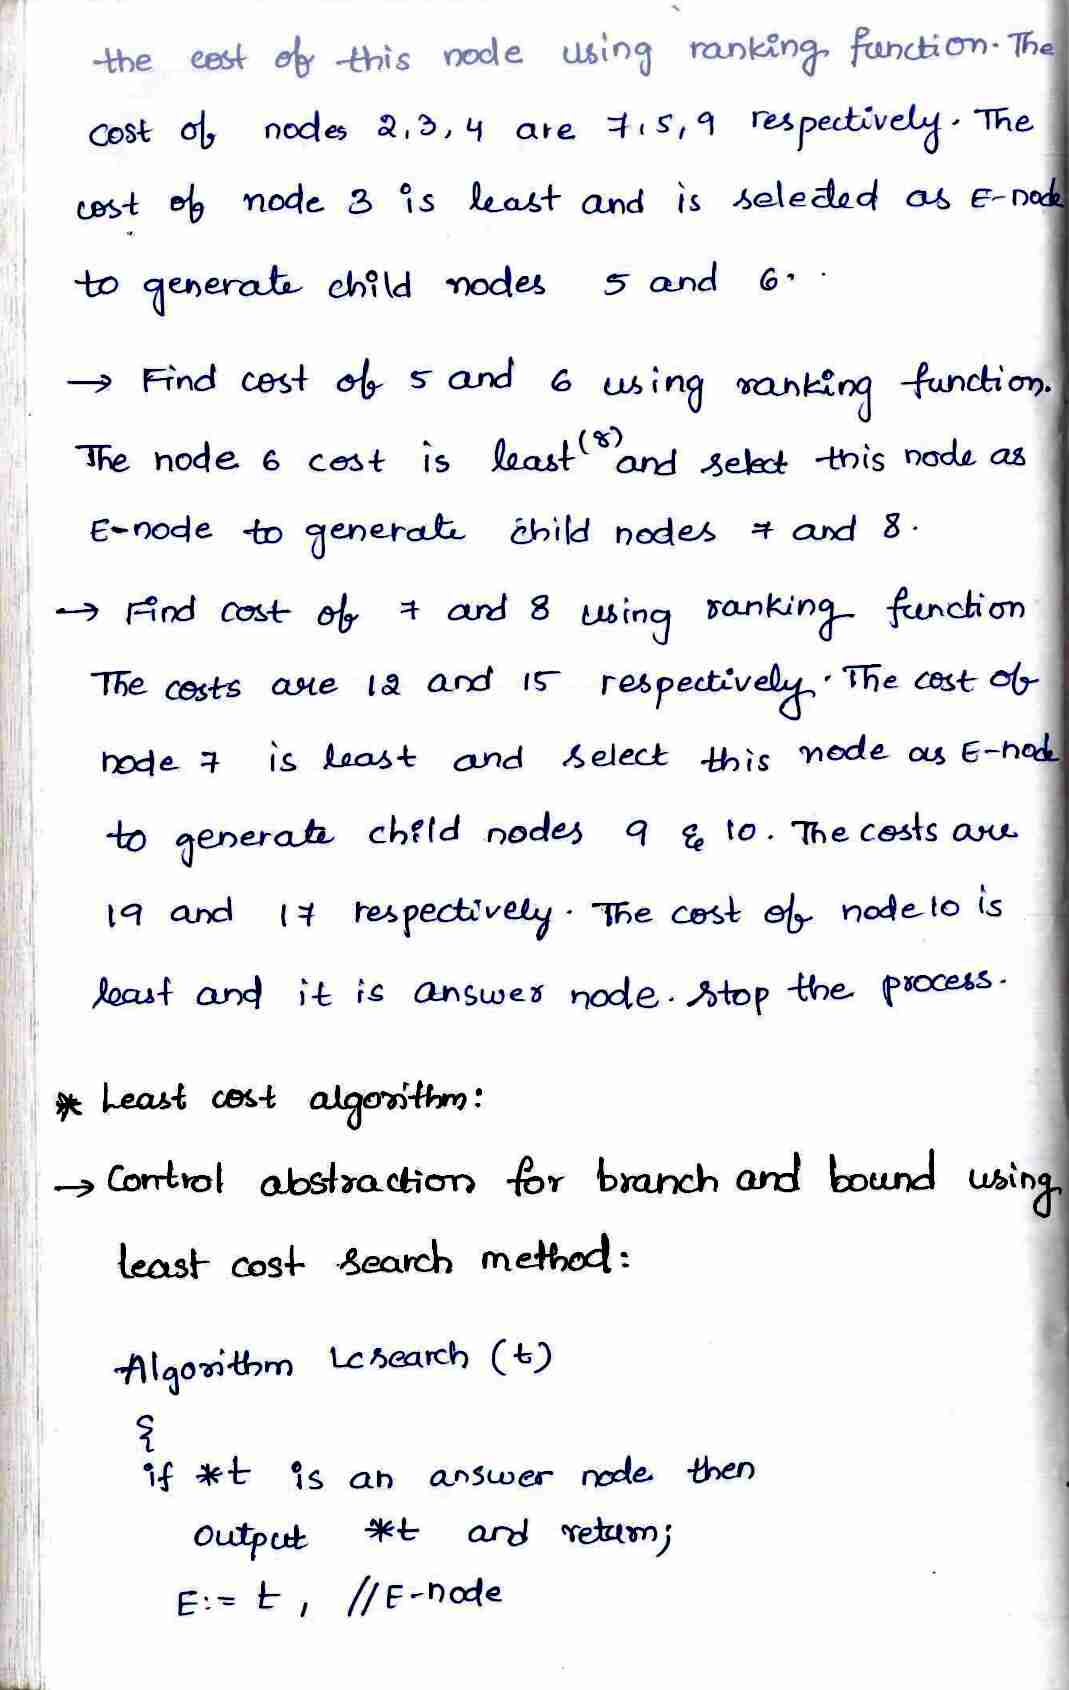 the cost of this node using ranking function. The
cost of nodes 2,3,4 are 7,5,9 respectively. The
cost of node 3 is least and is selected as E-node
to generate child nodes 5 and 6.
→ Find cost of 5 and 6 using ranking function.
The node 6 cost is least (8) and select this node as
E-node to generate child nodes 7 and 8.
→ Find cost of 7 and 8 using ranking function
The costs are 12 and 15 respectively. The cost of
node 7 is least and select this node as E-node
to generate child nodes 9 & 10. The costs are
19 and 17 respectively. The cost of node 10 is
least and it is answer node. Stop the process.
* Least cost algorithm:
→ Control abstraction for branch and bound using
least cost search method:
Algorithm LCsearch (t)
{
if *t is an answer node then
output *t and return;
E:= t, //E-node